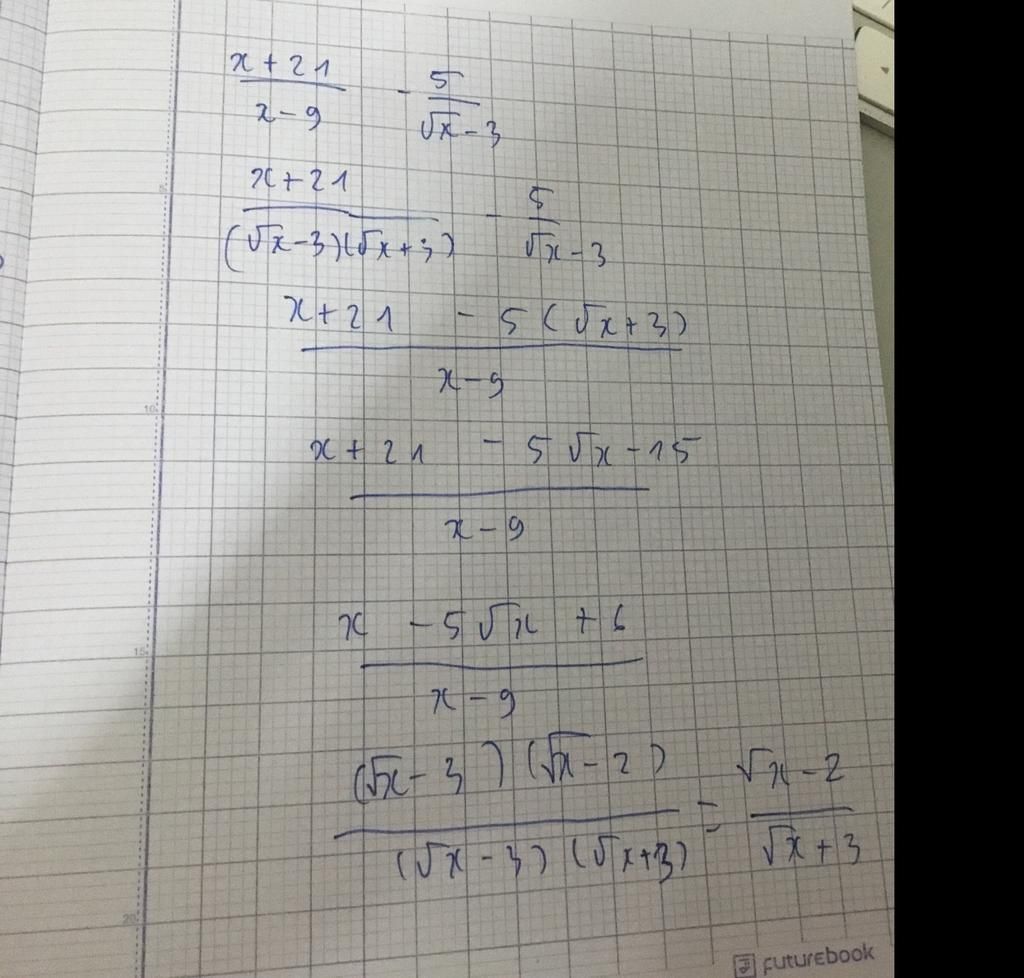 x + 21 / x - 9 - 5 / √x - 3
x + 21 / (√x - 3)(√x + 3) - 5 / √x - 3
5
x + 21 - 5 (√x + 3) / x - 9
10
x + 21 - 5 √x - 15 / x - 9
x - 5 √x + 6 / x - 9
15
(√x - 3) (√x - 2) / (√x - 3) (√x + 3) = √x - 2 / √x + 3
20
FUTUREBOOK